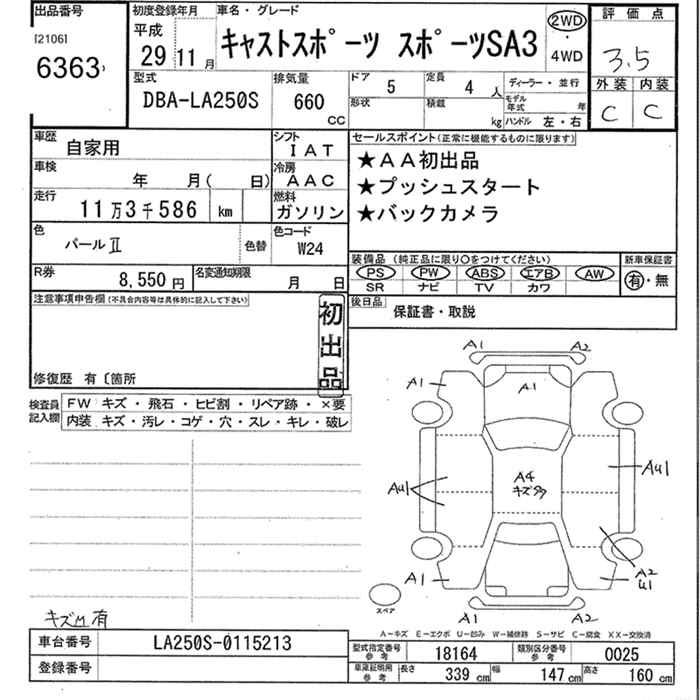 出品番号
[2106]
6363
初度登録年月
平成
29 11月
車名・グレード
キャストスポーツ スポーツSA3
2WD
・
4WD
評価点
3.5
外装 内装
C C
型式
DBA-LA250S
排気量
660
CC
ドア
5
定員
4 人
形状
積載
kg
ディーラー・並行
モデル年式 年
ハンドル 左・右
車歴 自家用
シフト
IAT
車検 年 月( 日)
冷房
AAC
走行 11万3千586 km
燃料
ガソリン
色 パールⅡ
色替
色コード
W24
R券 8,550円
名変通知期限 月 日
セールスポイント(正常に機能するものに限ります)
★AA初出品
★プッシュスタート
★バックカメラ
装備品(純正品に限り○をつけてください)
PS PW ABS エアB AW
SR ナビ TV カワ
新車保証書
有・無
後日品
保証書・取説
注意事項申告欄(不具合内容等は具体的に記入して下さい)
初出品
修復歴 有〔箇所
検査員記入欄
FW キズ・飛石・ヒビ割・リペア跡・×要
内装 キズ・汚レ・コゲ・穴・スレ・キレ・破レ
A1 A2
A1 A1
AU1 A4 キズ多 AU1
A1 A2 U1
A1 A2
スペア
キズM有
A-キズ E-エクボ U-凹み W-補修跡 S-サビ C-腐食 XX-交換済
車台番号 LA250S-0115213
登録番号
型式指定番号 参考 18164
類別区分番号 参考 0025
車庫証明用 参考 長さ 339 cm 幅 147 cm 高さ 160 cm